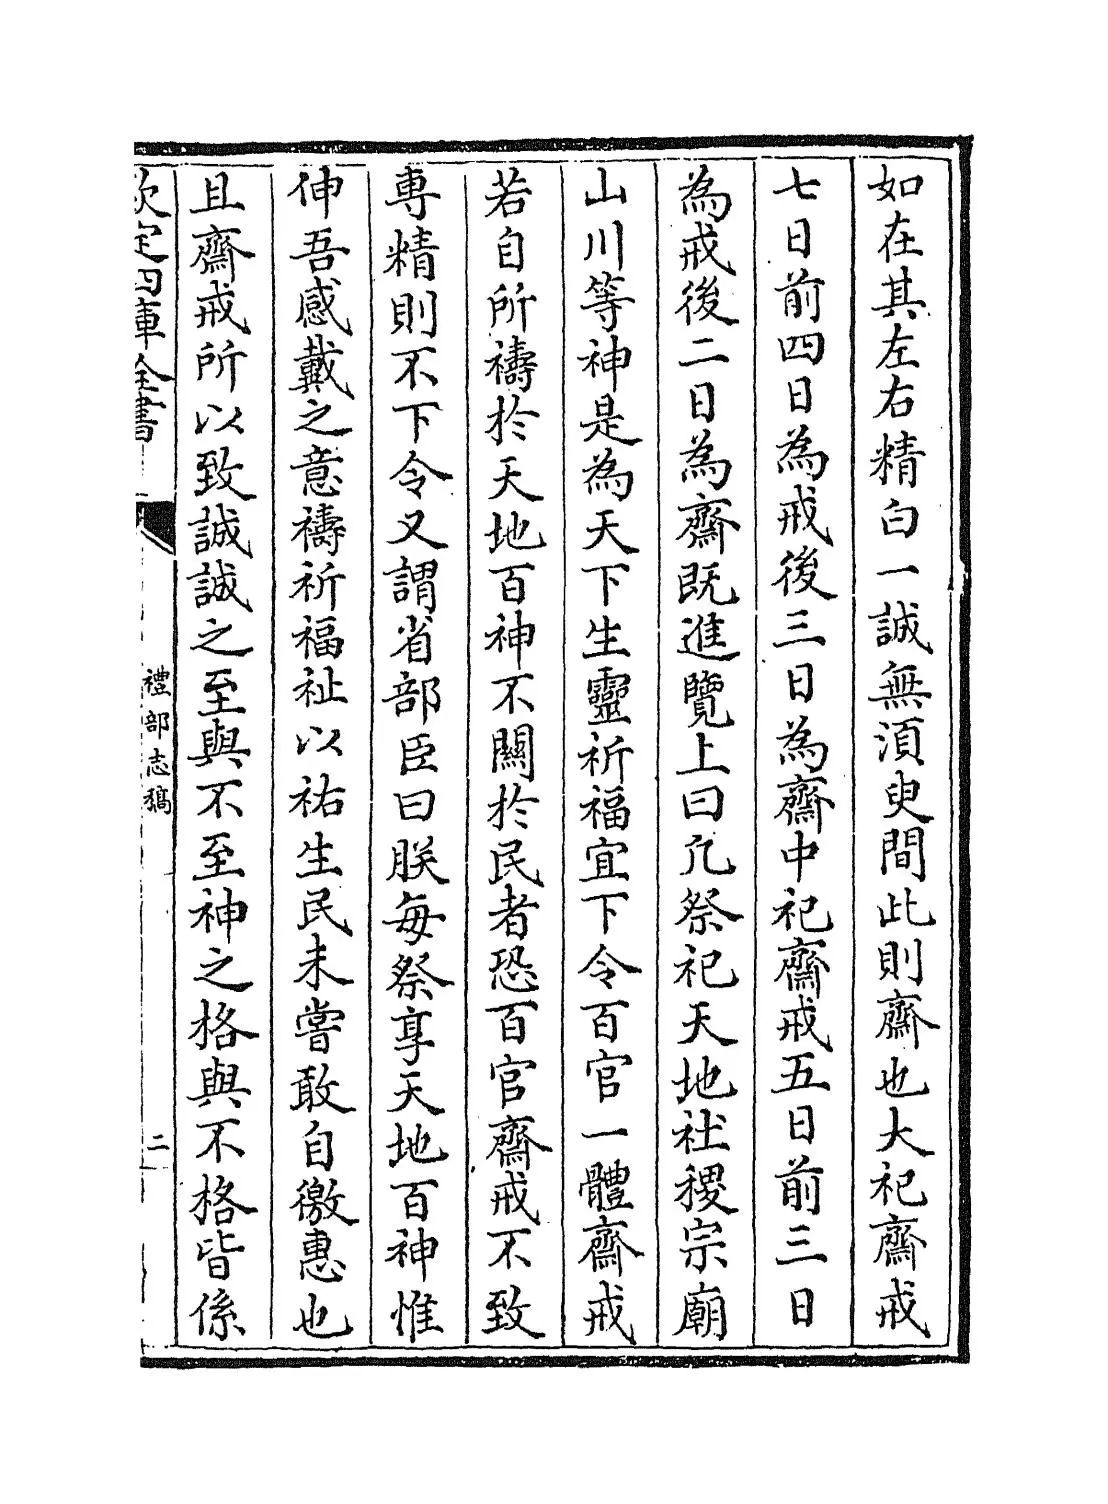 如在其左右精白一誠無須臾間此則齋也大祀齋戒
七日前四日為戒後三日為齋中祀齋戒五日前三日
為戒後二日為齋既進覽上曰凢祭祀天地社稷宗廟
山川等神是為天下生靈祈福宜下令百官一體齋戒
若自所禱於天地百神不關於民者恐百官齋戒不致
專精則不下令又謂省部臣曰朕每祭享天地百神惟
伸吾感戴之意禱祈福祉以祐生民未嘗敢自徼惠也
且齋戒所以致誠誠之至與不至神之格與不格皆係
欽定四庫全書
禮部志稿
二